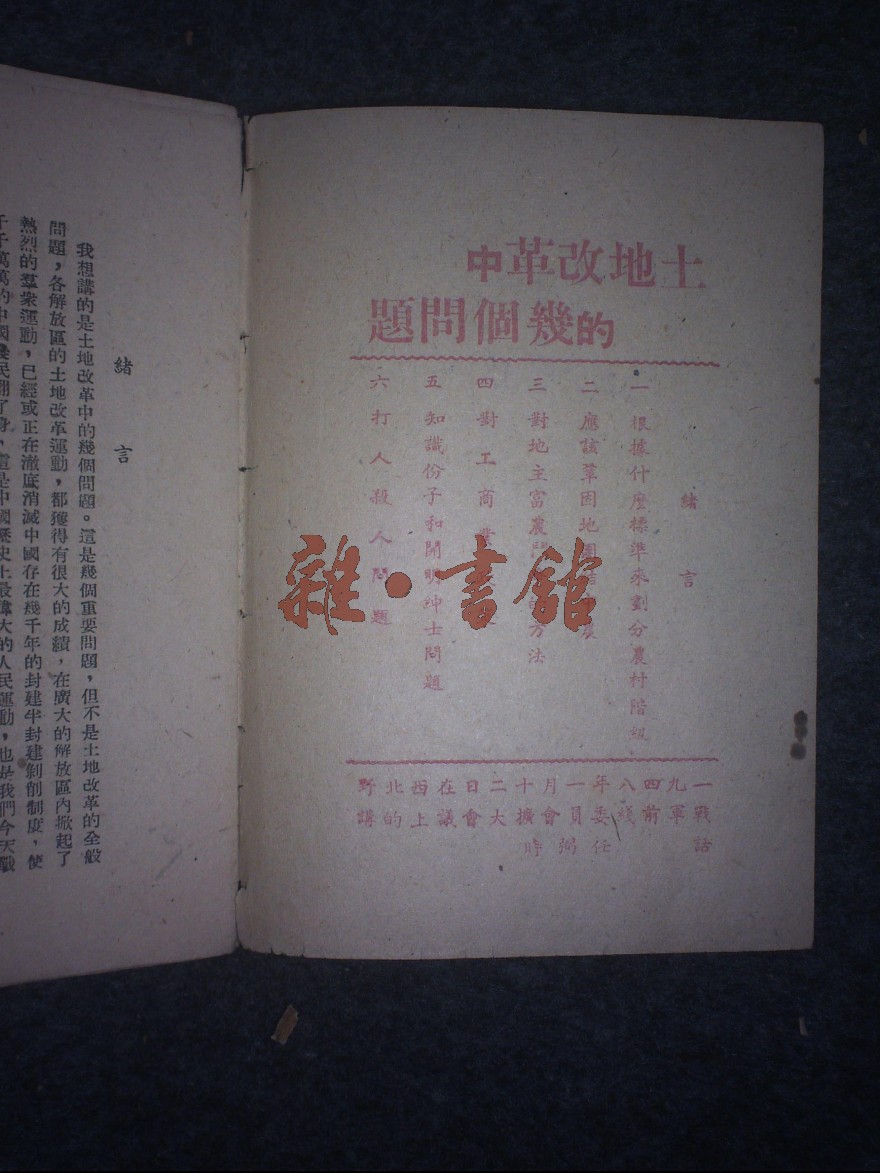 土地改革中
的幾個問題
緒言
一 根據什麼標準來劃分農村階級
二 應該鞏固地團
三 對地主富農鬥 方法
四 對工商業
五 知識份子和開明紳士問題
六 打人殺人問題
一九四八年一月十二日在西北野
戰軍前綫委員會擴大會議上的講
話 任弼時
雜·書館
緒言
我想講的是土地改革中的幾個問題。這是幾個重要問題,但不是土地改革的全般
問題,各解放區的土地改革運動,都獲得有很大的成績,在廣大的解放區內掀起了
熱烈的羣衆運動,已經或正在澈底消滅中國存在幾千年的封建半封建剝削制度,使
千千萬萬的中國農民翻了身,這是中國歷史上最偉大的人民運動,也是我們今天戰